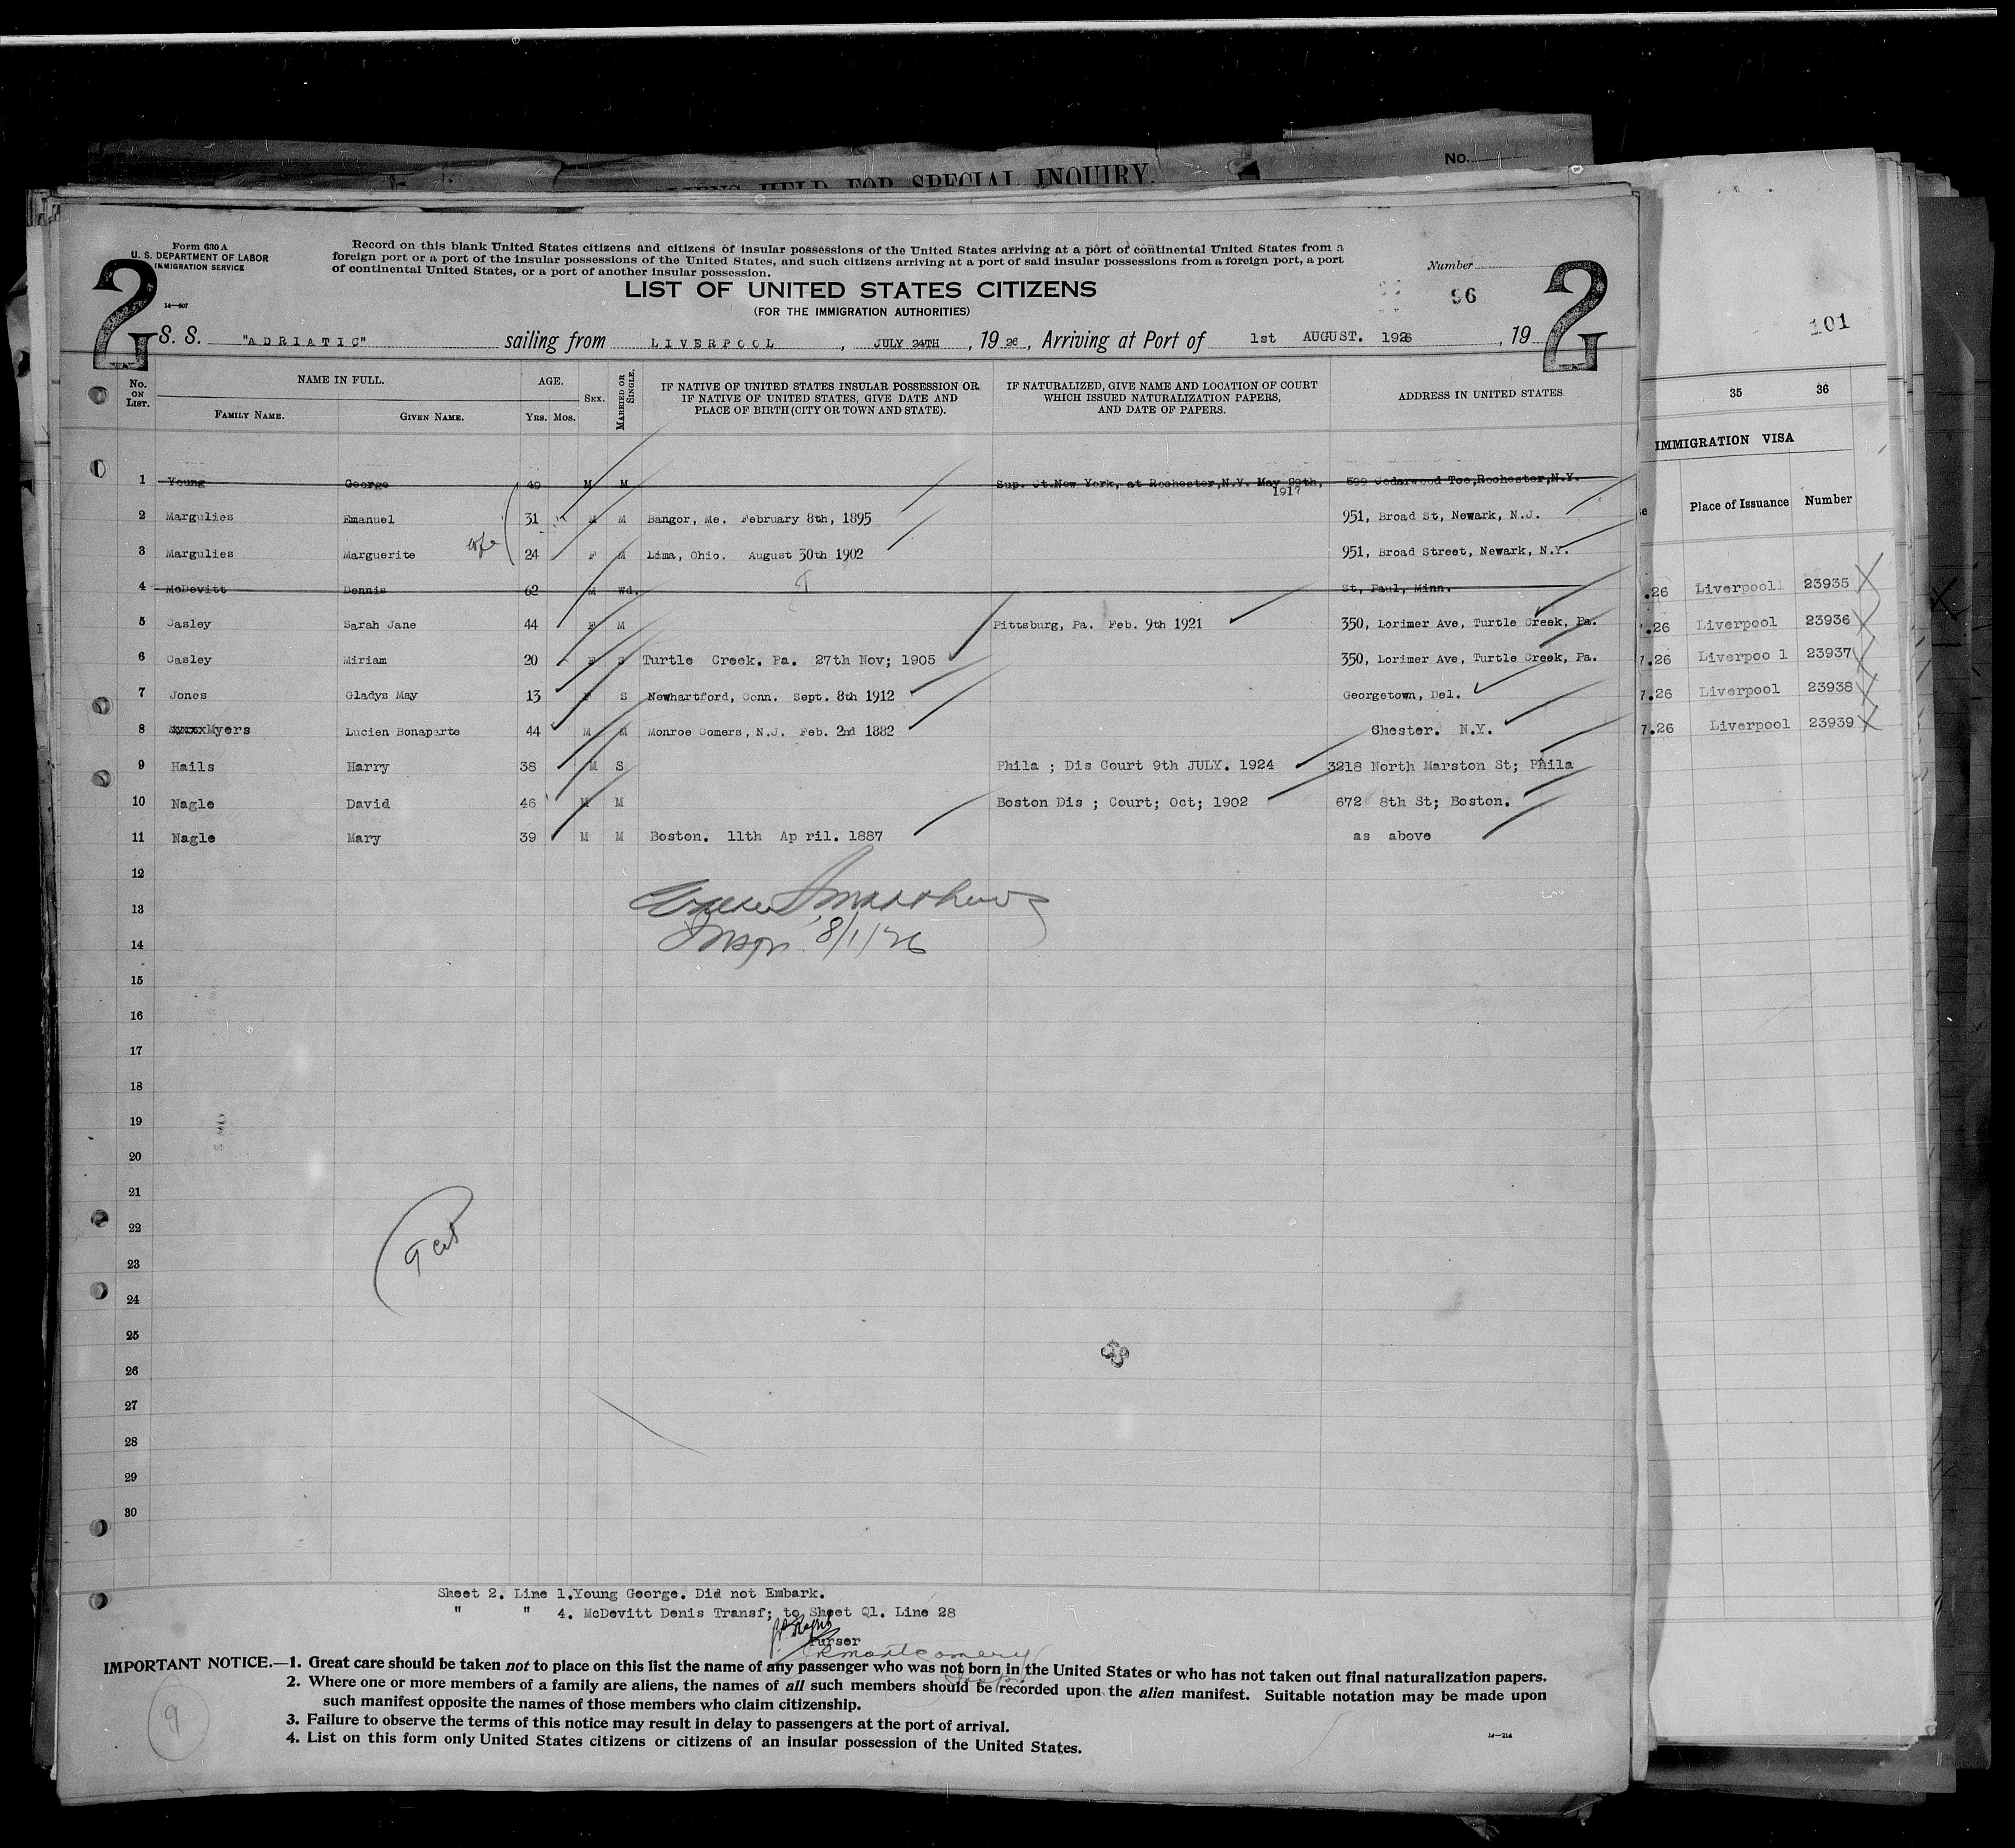 No.
LIENS HELD FOR SPECIAL INQUIRY.
Form 630 A
U. S. DEPARTMENT OF LABOR
IMMIGRATION SERVICE
14—607
2
Record on this blank United States citizens and citizens of insular possessions of the United States arriving at a port of continental United States from a
foreign port or a port of the insular possessions of the United States, and such citizens arriving at a port of said insular possessions from a foreign port, a port
of continental United States, or a port of another insular possession.
LIST OF UNITED STATES CITIZENS
(FOR THE IMMIGRATION AUTHORITIES)
Number
96
2
S. S. "ADRIATIC" sailing from LIVERPOOL, JULY 24TH, 19 26, Arriving at Port of 1st AUGUST. 1926, 19
No. ON LIST.
NAME IN FULL.
FAMILY NAME. GIVEN NAME.
AGE.
YRS. MOS.
SEX.
MARRIED OR SINGLE.
IF NATIVE OF UNITED STATES INSULAR POSSESSION OR
IF NATIVE OF UNITED STATES, GIVE DATE AND
PLACE OF BIRTH (CITY OR TOWN AND STATE).
IF NATURALIZED, GIVE NAME AND LOCATION OF COURT
WHICH ISSUED NATURALIZATION PAPERS,
AND DATE OF PAPERS.
ADDRESS IN UNITED STATES
1 Young George 49 M M Sup. Ct.New York, at Rochester,N.Y. May 29th, 1917 599 Cedarwood Tce,Rochester,N.Y.
2 Margulies Emanuel 31 M M Bangor, Me. February 8th, 1895 951, Broad St, Newark, N.J.
3 Margulies Marguerite wife 24 F M Lima, Ohio. August 30th 1902 951, Broad Street, Newark, N.Y.
4 McDevitt Dennis 62 M Wd. St, Paul, Minn.
5 Casley Sarah Jane 44 F M Pittsburg, Pa. Feb. 9th 1921 350, Lorimer Ave, Turtle Creek, Pa.
6 Casley Miriam 20 F S Turtle Creek. Pa. 27th Nov; 1905 350, Lorimer Ave, Turtle Creek, Pa.
7 Jones Gladys May 13 F S Newhartford, Conn. Sept. 8th 1912 Georgetown, Del.
8 Myers Lucien Bonaparte 44 M M Monroe Comers, N.J. Feb. 2nd 1882 Chester. N.Y.
9 Hails Harry 38 M S Phila ; Dis Court 9th JULY. 1924 3218 North Marston St; Phila
10 Nagle David 46 M M Boston Dis ; Court; Oct; 1902 672 8th St; Boston.
11 Nagle Mary 39 M M Boston. 11th Ap ril. 1887 as above
12
13
14 Insp. 8/1/26
15
16
17
18
19
20
21
22
23
24
25
26
27
28
29
30
Sheet 2. Line 1.Young George. Did not Embark.
" " 4. McDevitt Denis Transf; to Sheet Q1. Line 28
Purser
IMPORTANT NOTICE.—1. Great care should be taken not to place on this list the name of any passenger who was not born in the United States or who has not taken out final naturalization papers.
2. Where one or more members of a family are aliens, the names of all such members should be recorded upon the alien manifest. Suitable notation may be made upon
such manifest opposite the names of those members who claim citizenship.
3. Failure to observe the terms of this notice may result in delay to passengers at the port of arrival.
4. List on this form only United States citizens or citizens of an insular possession of the United States.
9
14—214
101
35 36
IMMIGRATION VISA
Place of Issuance Number
.26 Liverpool 23935
.26 Liverpool 23936
7.26 Liverpoo l 23937
7.26 Liverpool 23938
7.26 Liverpool 23939